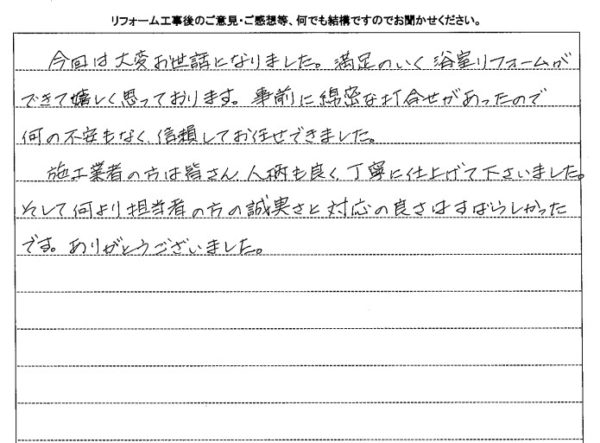 リフォーム工事後のご意見・ご感想等、何でも結構ですのでお聞かせください。
今回は大変お世話になりました。満足のいく浴室リフォームが
できて嬉しく思っております。事前に綿密な打合せがあったので
何の不安もなく、信頼してお任せできました。
施工業者の方は皆さん人柄も良く、丁寧に仕上げて下さいました。
そして何より担当者の方の誠実さと対応の良さはすばらしかった
です。ありがとうございました。